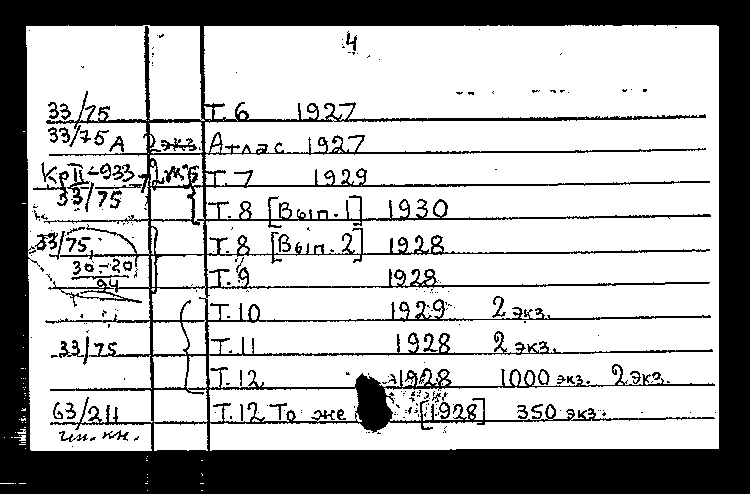 4
33/75 Т. 6 1927
33/75 А 2 экз. Атлас 1927
Кр II-933 Т. 7 1929
33/75 Т. 8 [Вып. 1] 1930
33/75 Т. 8 [Вып. 2] 1928
30-20/94 Т. 9 1928
Т. 10 1929 2 экз.
33/75 Т. 11 1928 2 экз.
Т. 12 1928 1000 экз. 2 экз.
63/211 Т. 12 То же [1928] 350 экз.